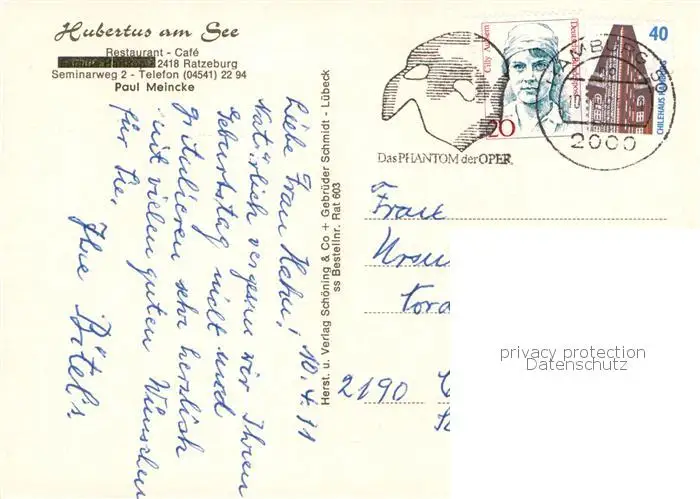 Hubertus am See
Restaurant - Café
2418 Ratzeburg
Seminarweg 2 - Telefon (04541) 22 94
Paul Meincke
Liebe Frau Hahn! 10.4.91
Natürlich vergessen wir Ihren
Geburtstag nicht und
gratulieren sehr herzlich
mit vielen guten Wünschen
für Sie.
Ihre Bötel's
Herst. u. Verlag Schöning & Co + Gebrüder Schmidt - Lübeck
ss Bestellnr. Rat 603
Das PHANTOM der OPER
Cilly Aussem
Deutsche Bundespost
20
40
CHILEHAUS HAMBURG
HAMBURG
2000
Frau
Ursu
2190
privacy protection
Datenschutz